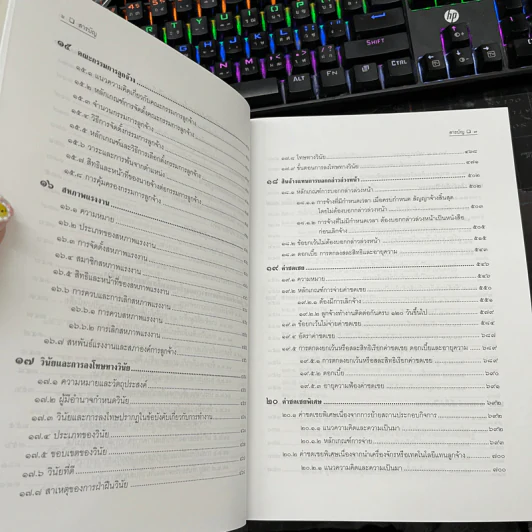 ๖ สารบัญ
๑๕ คณะกรรมการลูกจ้าง
๑๕.๑ แนวความคิดเกี่ยวกับคณะกรรมการลูกจ้าง
๑๕.๒ หลักเกณฑ์การจัดตั้งคณะกรรมการลูกจ้าง
๑๕.๓ จำนวนกรรมการลูกจ้าง
๑๕.๔ วิธีการจัดตั้งกรรมการลูกจ้าง
๑๕.๕ หลักเกณฑ์และวิธีการเลือกตั้งกรรมการลูกจ้าง
๑๕.๖ วาระและการพ้นจากตำแหน่ง
๑๕.๗ สิทธิและหน้าที่ของนายจ้างต่อกรรมการลูกจ้าง
๑๕.๘ การคุ้มครองกรรมการลูกจ้าง
๑๖ สหภาพแรงงาน
๑๖.๑ ความหมาย
๑๖.๒ ประเภทของสหภาพแรงงาน
๑๖.๓ การจัดตั้งสหภาพแรงงาน
๑๖.๔ สมาชิกสหภาพแรงงาน
๑๖.๕ สิทธิและหน้าที่ของสหภาพแรงงาน
๑๖.๖ การควบและการเลิกสหภาพแรงงาน
๑๖.๖.๑ การควบสหภาพแรงงาน
๑๖.๖.๒ การเลิกสหภาพแรงงาน
๑๖.๗ สหพันธ์แรงงานและสภาองค์การลูกจ้าง
๑๗ วินัยและการลงโทษทางวินัย
๑๗.๑ ความหมายและวัตถุประสงค์
๑๗.๒ ผู้มีอำนาจกำหนดวินัย
๑๗.๓ วินัยและการลงโทษปรากฏในข้อบังคับเกี่ยวกับการทำงาน
๑๗.๔ ประเภทของวินัย
๑๗.๕ ขอบเขตของวินัย
๑๗.๖ วินัยที่ดี
๑๗.๗ สาเหตุของการฝ่าฝืนวินัย
สารบัญ ๗
๑๗.๘ โทษทางวินัย ๔๖๘
๑๗.๙ ขั้นตอนการลงโทษทางวินัย
๑๘ สินจ้างแทนการบอกกล่าวล่วงหน้า ๕๐๒
๑๘.๑ หลักเกณฑ์การบอกกล่าวล่วงหน้า ๕๐๒
๑๘.๑.๑ การจ้างที่มีกำหนดเวลา เมื่อครบกำหนด สัญญาจ้างสิ้นสุด
โดยไม่ต้องบอกกล่าวล่วงหน้า
๑๘.๑.๒ การจ้างที่ไม่มีกำหนดเวลา ต้องบอกกล่าวล่วงหน้าเป็นหนังสือ
ก่อนเลิกจ้าง ๕๐๕
๑๘.๒ ข้อยกเว้นไม่ต้องบอกกล่าวล่วงหน้า ๕๑๕
๑๘.๓ ดอกเบี้ย การตกลงสละสิทธิและอายุความ ๕๔๓
๑๙ ค่าชดเชย ๕๔๖
๑๙.๑ ความหมาย ๕๔๖
๑๙.๒ หลักเกณฑ์การจ่ายค่าชดเชย ๕๕๑
๑๙.๒.๑ ต้องมีการเลิกจ้าง ๕๕๑
๑๙.๒.๒ ลูกจ้างทำงานติดต่อกันครบ ๑๒๐ วันขึ้นไป ๕๗๙
๑๙.๓ ข้อยกเว้นไม่จ่ายค่าชดเชย ๕๘๔
๑๙.๔ อัตราค่าชดเชย ๖๘๗
๑๙.๕ การตกลงยกเว้นหรือสละสิทธิเรียกค่าชดเชย ดอกเบี้ยและอายุความ ๖๘๙
๑๙.๕.๑ การตกลงยกเว้นหรือสละสิทธิเรียกค่าชดเชย ๖๘๙
๑๙.๕.๒ ดอกเบี้ย ๖๙๐
๑๙.๕.๓ อายุความฟ้องค่าชดเชย ๖๙๑
๒๐ ค่าชดเชยพิเศษ ๖๙๒
๒๐.๑ ค่าชดเชยพิเศษเนื่องจากการย้ายสถานประกอบกิจการ ๖๙๒
๒๐.๑.๑ แนวความคิดและความเป็นมา ๖๙๒
๒๐.๑.๒ หลักเกณฑ์การจ่าย ๖๙๓
๒๐.๒ ค่าชดเชยพิเศษเนื่องจากนำเครื่องจักรหรือเทคโนโลยีแทนลูกจ้าง ๗๐๐
๒๐.๒.๑ แนวความคิดและความเป็นมา ๗๐๐
hp
Shift
Alt
Fn
Ctrl